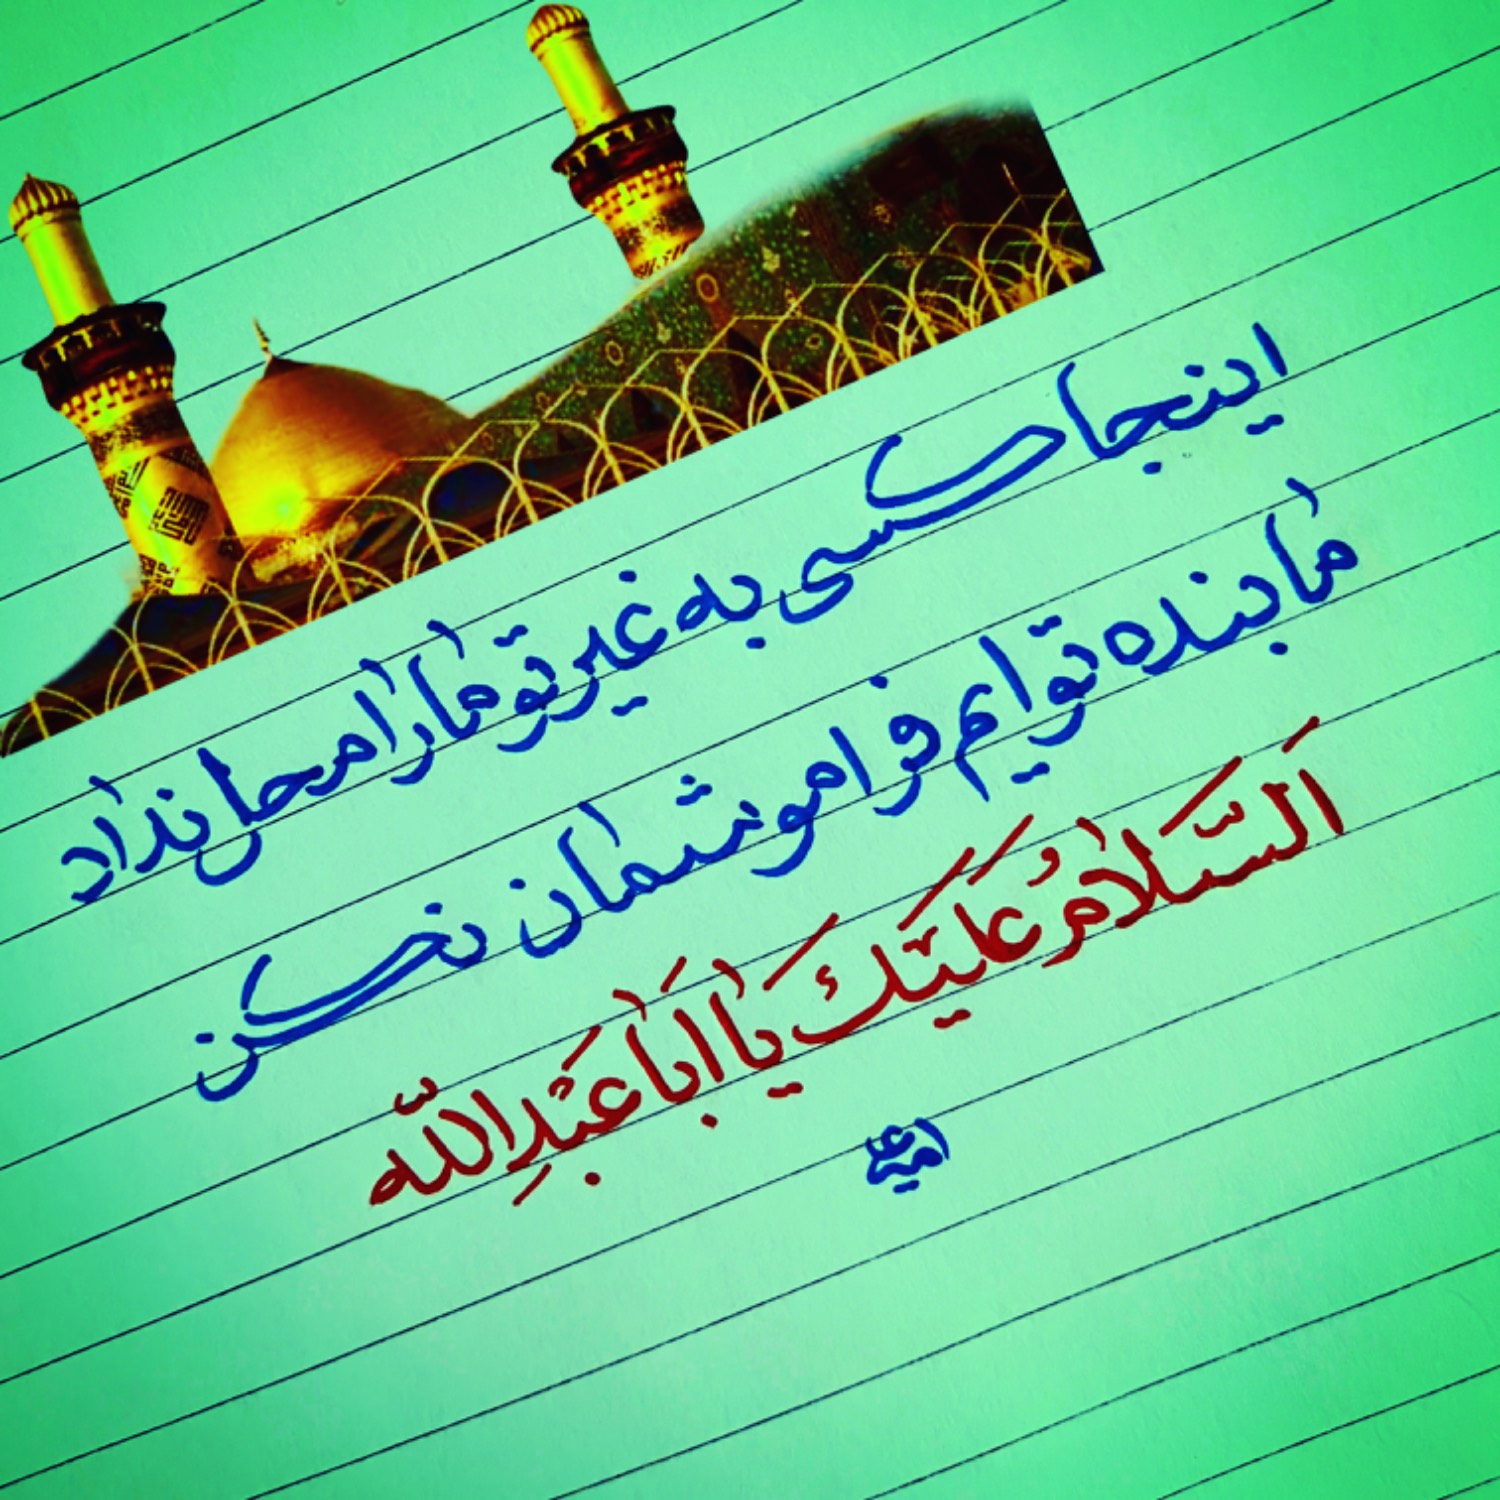 اینجا کسی به غیر تو ما را محل نداد
ما بنده توایم فراموشمان نکن
اَلسَّلامُ عَلَیْکَ یا اَبا عَبْدِاللّه
امیرعلی